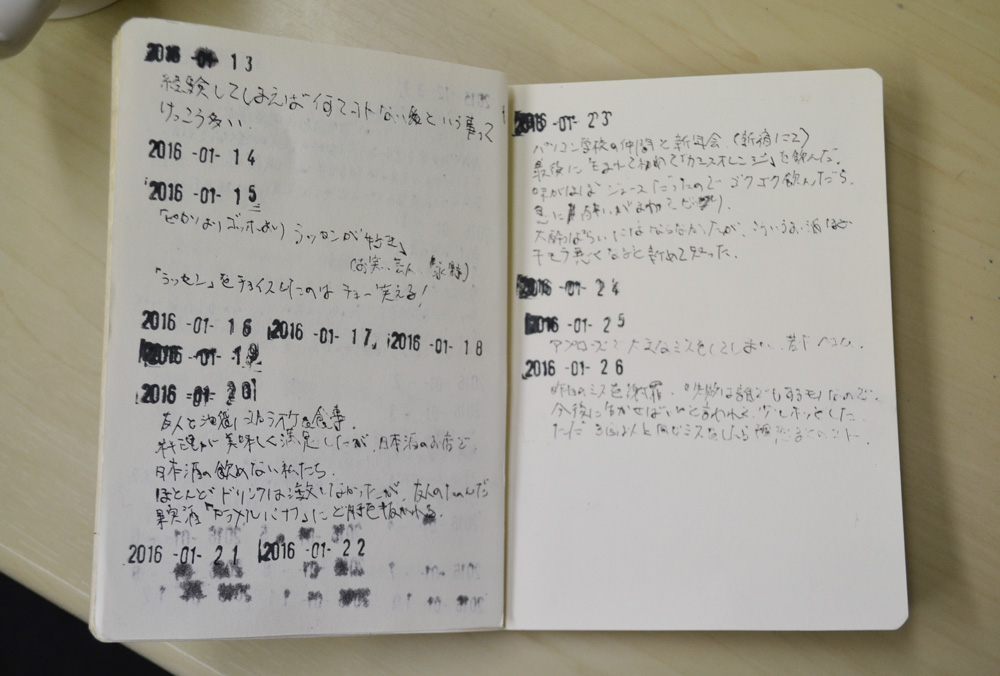 2016 -01- 13
経験してしまえば何てコトない という事って
けっこう多い.
2016 -01- 14
2016 -01- 15
「ピカソよりゴッホより ラッセンが好き」
(お笑い芸人 永野)
「ラッセン」をチョイスしたのは チョー笑える!
2016 -01- 16 2016 -01- 17 2016 -01- 18
2016 -01- 19
2016 -01- 20
友人と池袋に 食事.
料理が美味しく満足したが、日本酒のお店で
日本酒の飲めない私たち.
ほとんどドリンクは注文しなかったが、友人のたのんだ
果実酒「 」に 度肝 ぬかれる.
2016 -01- 21 2016 -01- 22
2016 -01- 23
パソコン学校の仲間と新年会 (新宿にて)
最後に生まれて初めて「カシスオレンジ」を飲んだ.
味がほぼジュースだったのでゴクゴク飲んだら、
急に 酔いが
泥酔 ならなかったが、こういうお酒ほど
タチが悪くなると初めて知った.
2016 -01- 24
2016 -01- 25
大きなミスをしてしまい、若干ヘコム.
2016 -01- 26
昨日のミスを謝罪. 失敗は誰でもするモノなので、
今後に生かせばいいと言われ、少しホッとした
ただ 同じミスをしたら